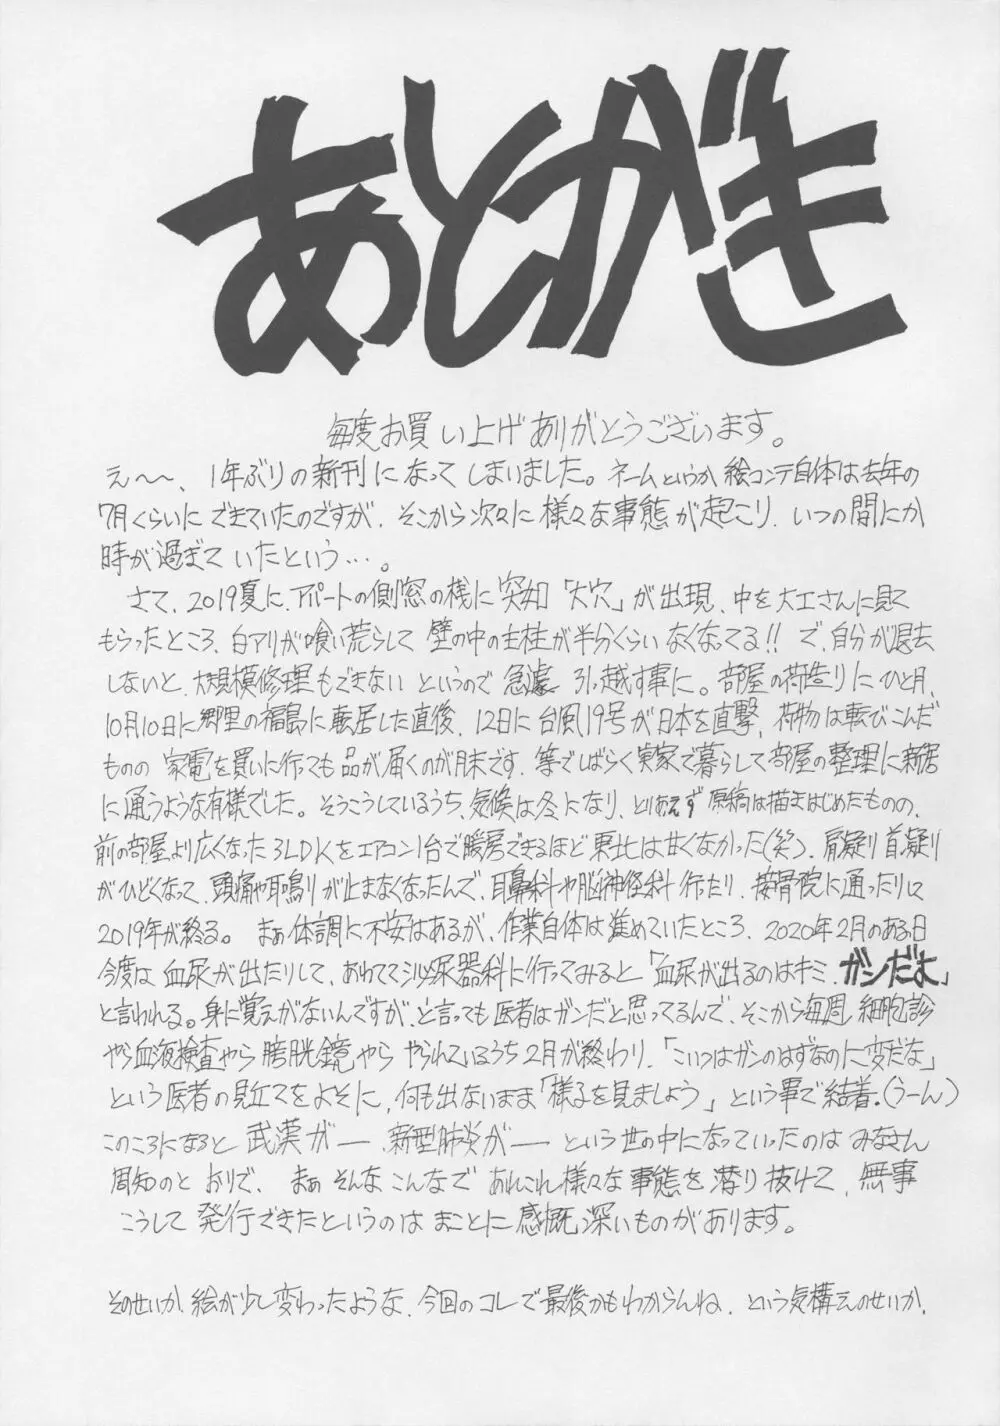 あとがき
毎度お買い上げありがとうございます。
え〜〜、1年ぶりの新刊になってしまいました。ネームというか絵コンテ自体は去年の
7月くらいにできていたのですが、そこから次々に様々な事態が起こり、いつの間にか
時が過ぎていたという…。
さて、2019夏に、アパートの側窓の桟に突如「大穴」が出現、中を大工さんに見て
もらったところ、白アリが喰い荒らして壁の中の主柱が半分くらいなくなってる!!で、自分が退去
しないと、大規模修理もできないというので急遽引っ越す事に。部屋の荷造りにひと月、
10月10日に郷里の福島に転居した直後、12日に台風19号が日本を直撃、荷物は転びこんだ
ものの家電を買いに行っても品が届くのが月末です、等でしばらく実家で暮らして部屋の整理に新居
に通うような有様でした。そうこうしているうち、気候は冬になり、とりあえず原稿は描きはじめたものの、
前の部屋より広くなった3LDKをエアコン1台で暖房できるほど東北は甘くなかった(笑)、肩凝り首凝り
がひどくなって、頭痛や耳鳴りが止まなくなったんで、耳鼻科や脳神経科行ったり、接骨院に通ったりして
2019年が終る。まぁ体調に不安はあるが、作業自体は進めていたところ、2020年2月のある日
今度は血尿が出たりして、あわてて泌尿器科に行ってみると「血尿が出るのはキミ、ガンだよ」
と言われる。身に覚えがないんですが、と言っても医者はガンだと思ってるんで、そこから毎週細胞診
やら血液検査やら膀胱鏡やらやられているうち2月が終わり、「こいつはガンのはずなのに変だな」
という医者の見立てをよそに、何も出ないまま「様子を見ましょう」という事で結着。(うーん)
このころになると武漢が― 新型肺炎が― という世の中になっていったのはみなさん
周知のとおりで、まぁそんなこんなであれこれ様々な事態を潜り抜けて、無事
こうして発行できたというのはまことに感慨深いものがあります。
そのせいか絵が少し変わったような、今回のコレで最後かもわからんね、という気構えのせいか、